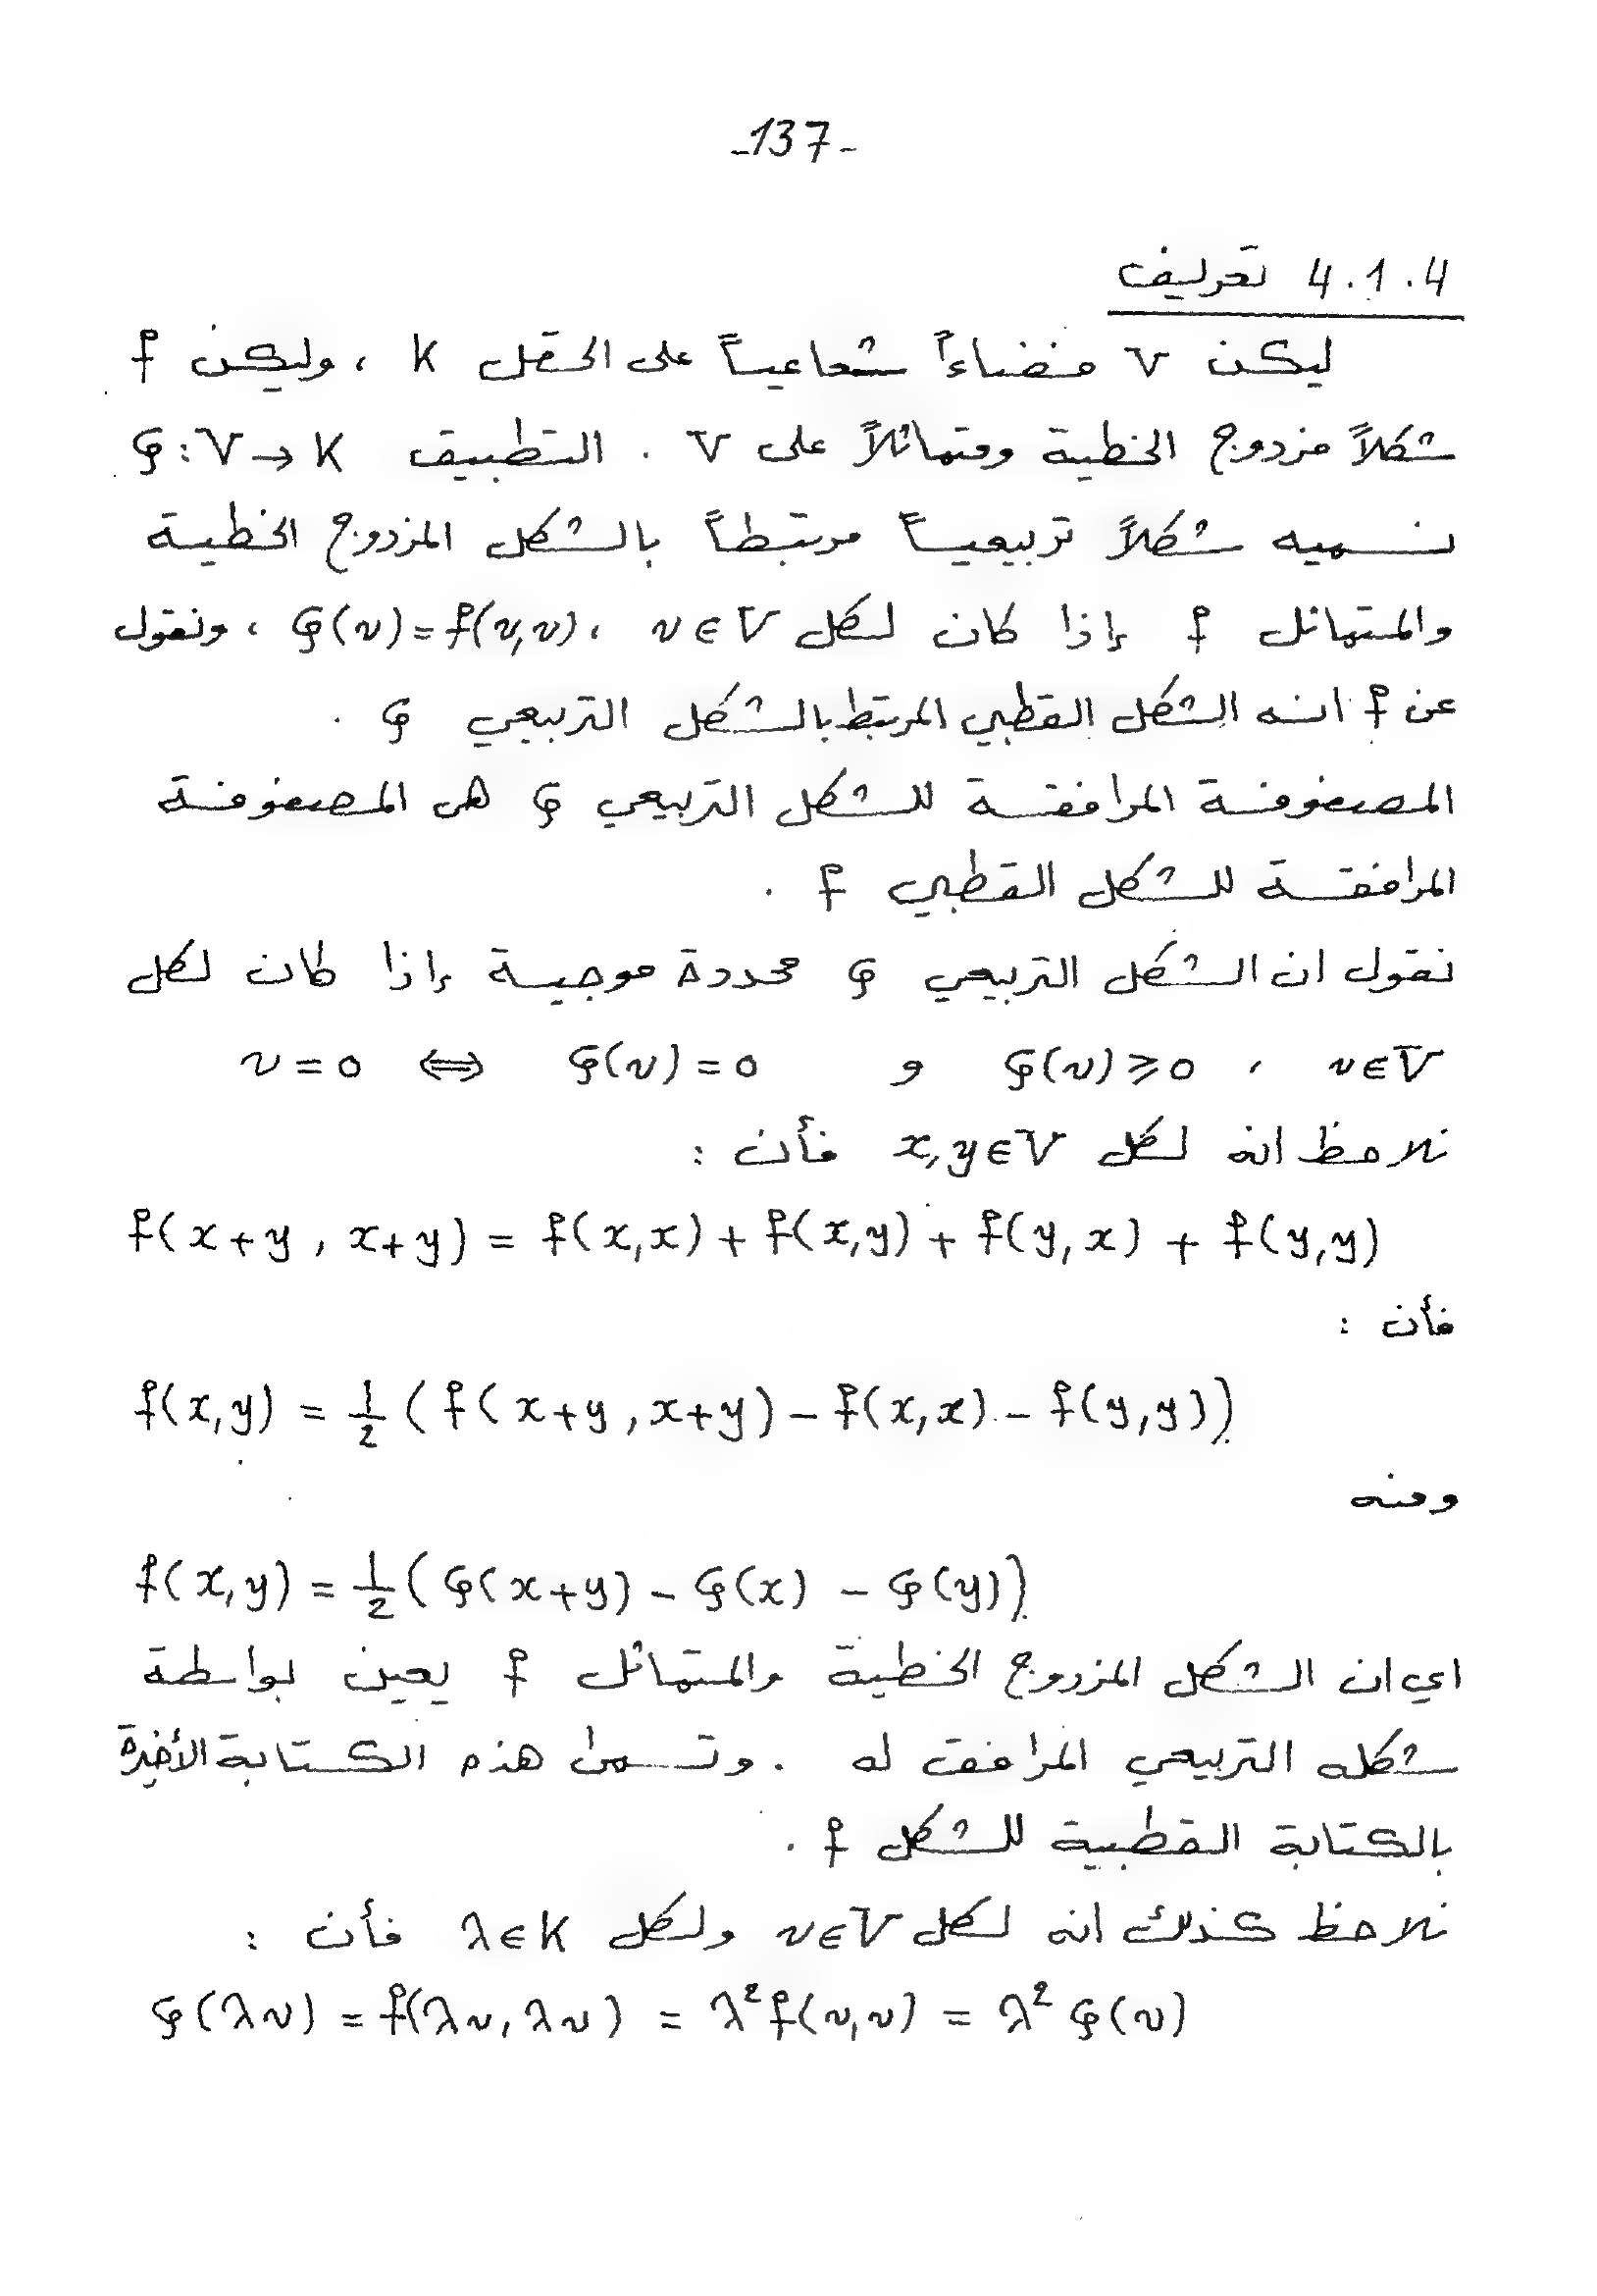 -137-
4.1.4 تعريف
ليكن V فضاءاً شعاعياً على الحقل K ، وليكن f
شكلاً مزدوج الخطية ومتماثلاً على V . التطبيق φ:V→K
نسميه شكلاً تربيعياً مرتبطاً بالشكل المزدوج الخطية
والمتماثل f إذا كان لكل v∈V ، φ(v)=f(v,v) ، ونقول
عن f انه الشكل القطبي المرتبط بالشكل التربيعي φ .
المصفوفة المرافقة للشكل التربيعي φ هي المصفوفة
المرافقة للشكل القطبي f .
نقول ان الشكل التربيعي φ محددة موجبة إذا كان لكل
v∈V ، φ(v)⩾0 و φ(v)=0 ⟺ v=0
نلاحظ انه لكل x,y∈V فأن :
f(x+y , x+y) = f(x,x) + f(x,y) + f(y,x) + f(y,y)
فأن :
f(x,y) = 1/2 (f(x+y,x+y) - f(x,x) - f(y,y))
ومنه
f(x,y) = 1/2 (φ(x+y) - φ(x) - φ(y))
اي ان الشكل المزدوج الخطية والمتماثل f يعين بواسطة
شكله التربيعي المرافق له . وتسمى هذه الكتابة الأخيرة
بالكتابة القطبية للشكل f .
نلاحظ كذلك انه لكل v∈V ولكل λ∈K فأن :
φ(λv) = f(λv,λv) = λ² f(v,v) = λ² φ(v)